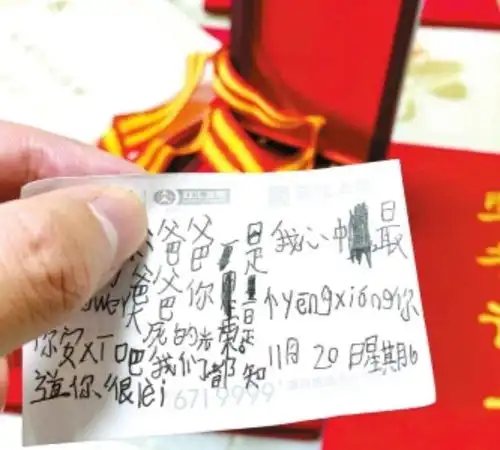 爸爸是我心中最
爸爸你是个yēngxióng你
死的光荣。
你安xī吧我们都知 11月20日星期6
道你很lèi 6719999